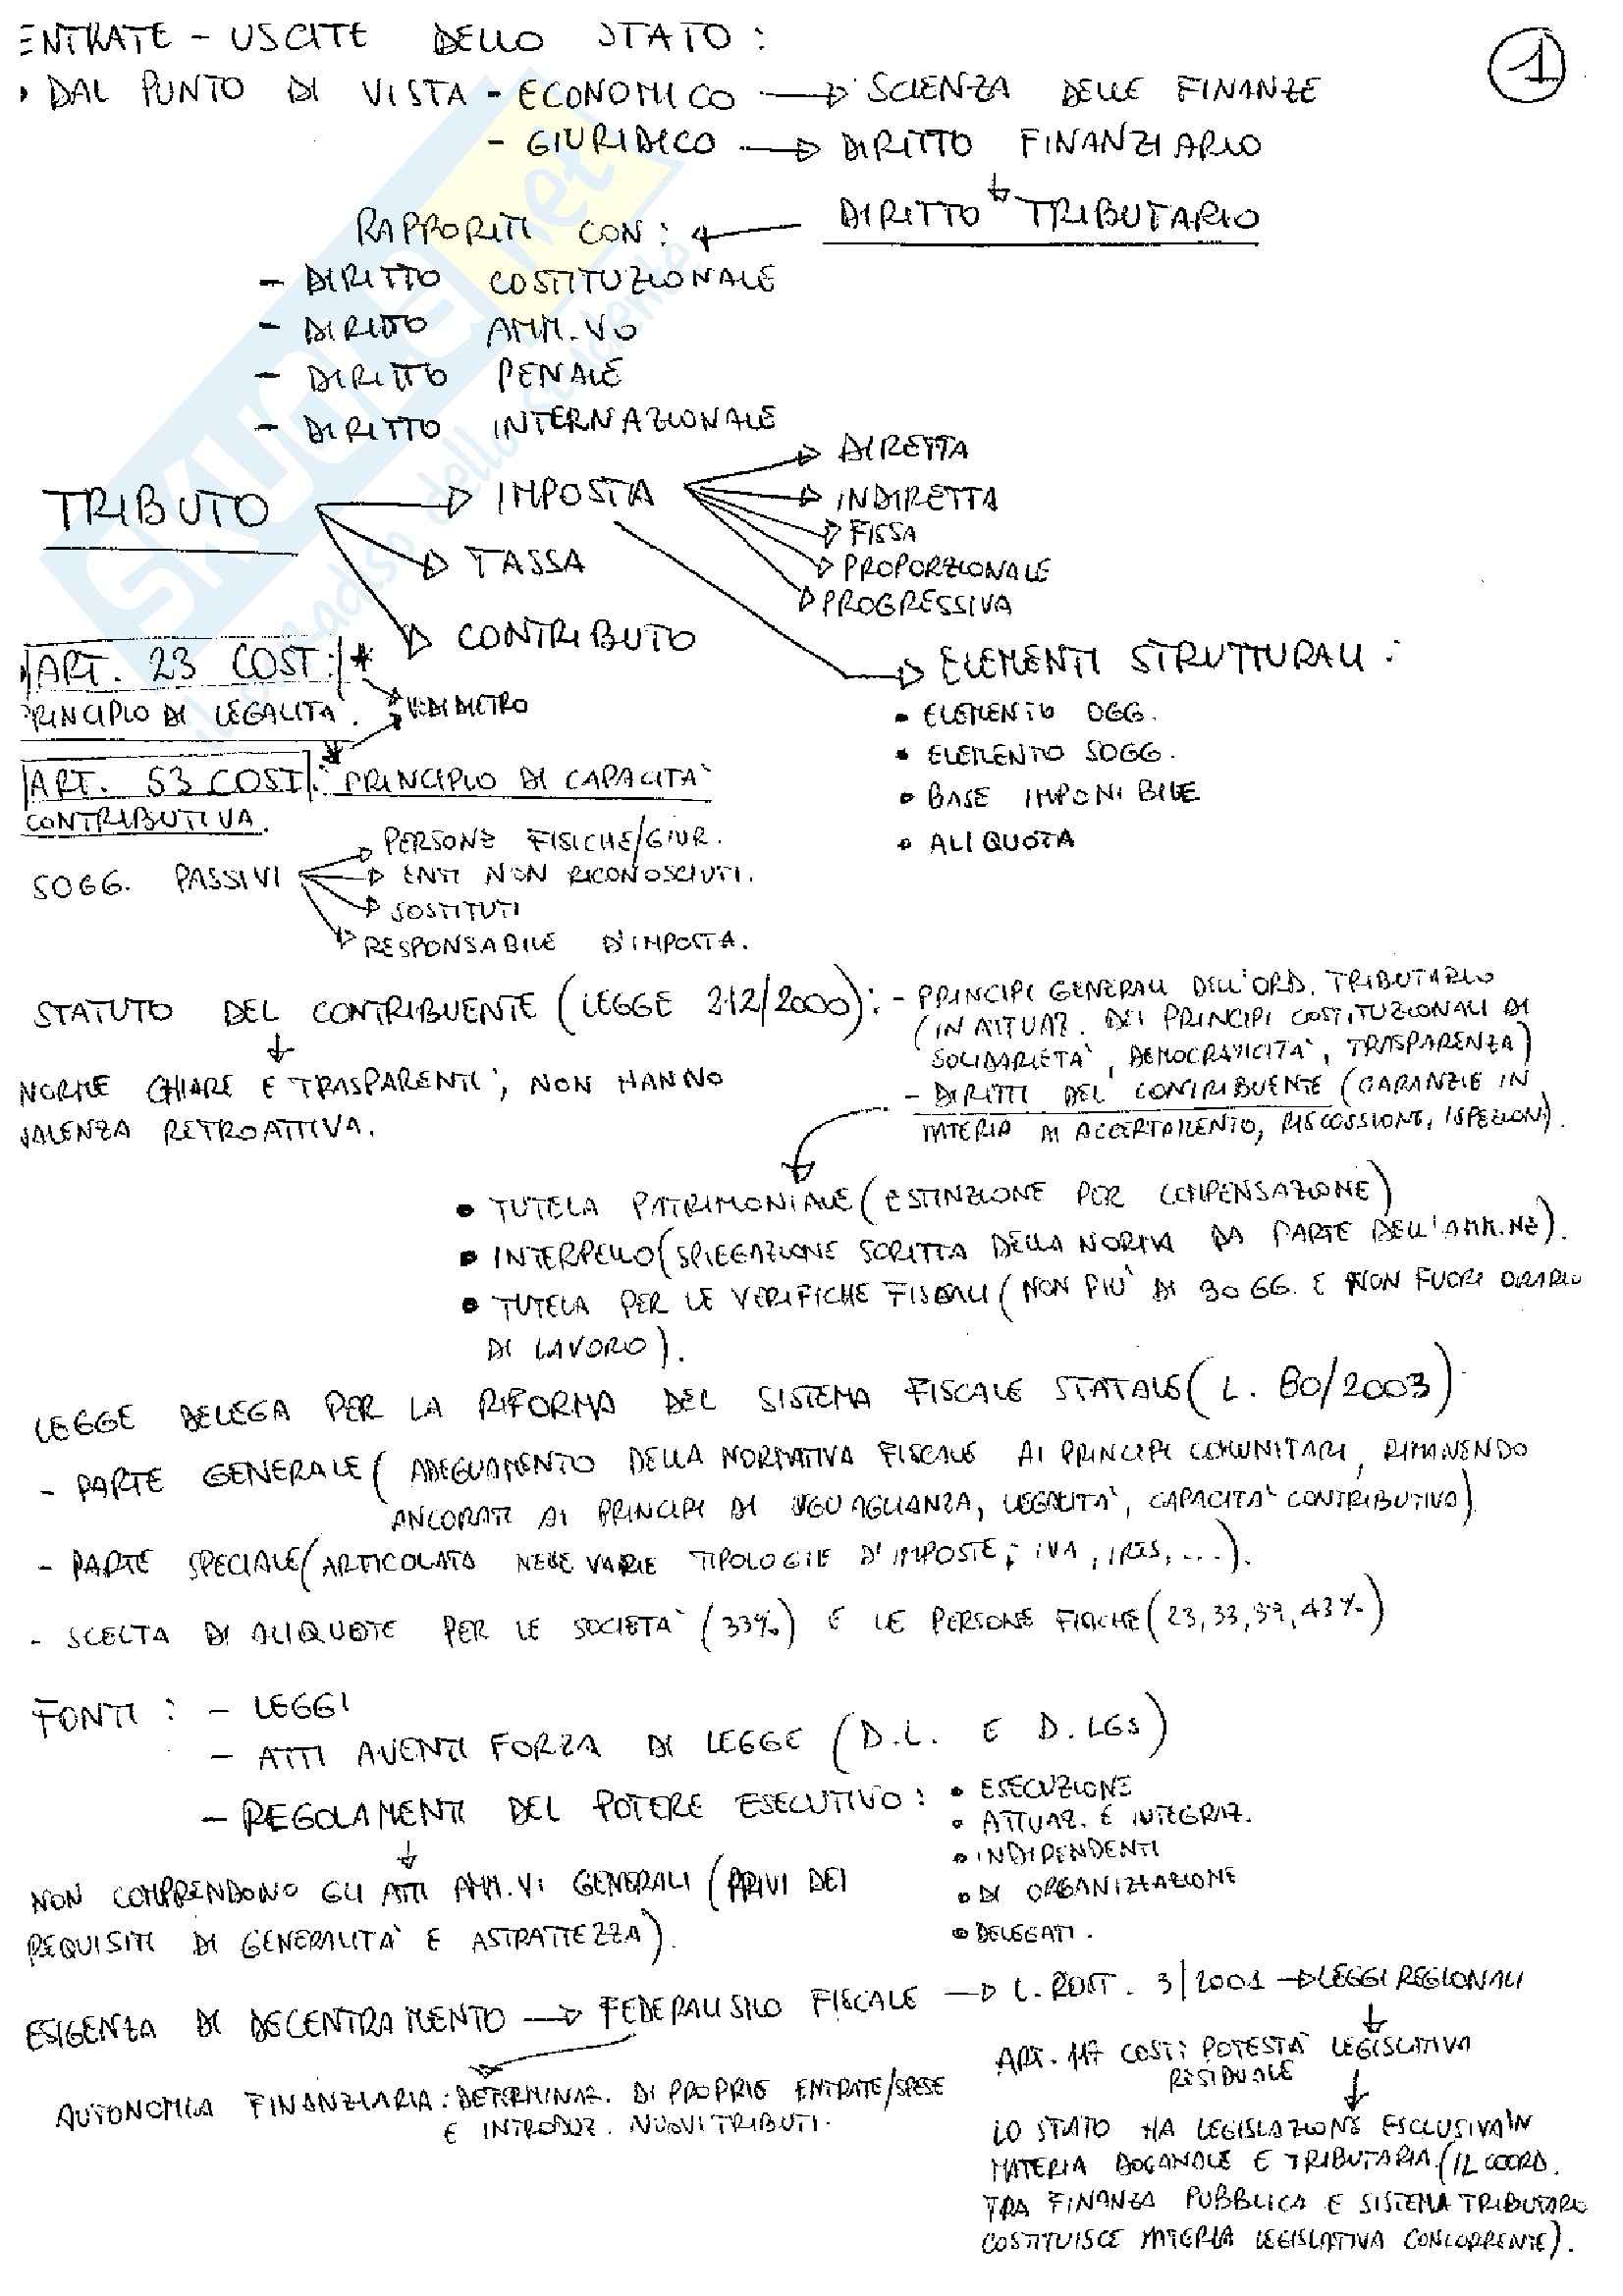 ENTRATE - USCITE DELLO STATO :
1
• DAL PUNTO DI VISTA - ECONOMICO → SCIENZA DELLE FINANZE
- GIURIDICO → DIRITTO FINANZIARIO
↓
RAPPORTI CON : ← DIRITTO TRIBUTARIO
- DIRITTO COSTITUZIONALE
- DIRITTO AMM.VO
- DIRITTO PENALE
- DIRITTO INTERNAZIONALE
TRIBUTO → IMPOSTA → DIRETTA
→ INDIRETTA
→ FISSA
→ PROPORZIONALE
→ PROGRESSIVA
→ TASSA
→ CONTRIBUTO
→ ELEMENTI STRUTTURALI :
• ELEMENTO OGG.
• ELEMENTO SOGG.
• BASE IMPONIBILE
• ALIQUOTA
ART. 23 COST: *
PRINCIPIO DI LEGALITÀ.
* VEDI DIETRO
*
ART. 53 COST: PRINCIPIO DI CAPACITÀ
CONTRIBUTIVA.
SOGG. PASSIVI → PERSONE FISICHE/GIUR.
→ ENTI NON RICONOSCIUTI.
→ SOSTITUTI
→ RESPONSABILE D'IMPOSTA.
STATUTO DEL CONTRIBUENTE (LEGGE 212/2000): - PRINCIPI GENERALI DELL'ORD. TRIBUTARIO
(IN ATTUAZ. DEI PRINCIPI COSTITUZIONALI DI
SOLIDARIETÀ, DEMOCRATICITÀ, TRASPARENZA)
- DIRITTI DEL CONTRIBUENTE (GARANZIE IN
MATERIA DI ACCERTAMENTO, RISCOSSIONE, ISPEZIONI).
↓
NORME CHIARE E TRASPARENTI, NON HANNO
VALENZA RETROATTIVA.
• TUTELA PATRIMONIALE (ESTINZIONE PER COMPENSAZIONE)
• INTERPELLO (SPIEGAZIONE SCRITTA DELLA NORMA DA PARTE DELL'AMM.NE).
• TUTELA PER LE VERIFICHE FISCALI (NON PIÙ DI 30 GG. E NON FUORI ORARIO
DI LAVORO).
LEGGE DELEGA PER LA RIFORMA DEL SISTEMA FISCALE STATALE (L. 80/2003)
- PARTE GENERALE (ADEGUAMENTO DELLA NORMATIVA FISCALE AI PRINCIPI COMUNITARI, RIMANENDO
ANCORATI AI PRINCIPI DI UGUAGLIANZA, LEGALITÀ, CAPACITÀ CONTRIBUTIVA)
- PARTE SPECIALE (ARTICOLATA NELLE VARIE TIPOLOGIE D'IMPOSTE; IVA, IRES, ...).
- SCELTA DI ALIQUOTE PER LE SOCIETÀ (33%) E LE PERSONE FISICHE (23, 33, 39, 43%)
FONTI : - LEGGI
- ATTI AVENTI FORZA DI LEGGE (D.L. E D.LGS)
- REGOLAMENTI DEL POTERE ESECUTIVO : • ESECUZIONE
• ATTUAZ. E INTEGRAZ.
• INDIPENDENTI
• DI ORGANIZZAZIONE
• DELEGATI.
↓
NON COMPRENDONO GLI ATTI AMM.VI GENERALI (PRIVI DEI
REQUISITI DI GENERALITÀ E ASTRATTEZZA).
ESIGENZA DI DECENTRAMENTO → FEDERALISMO FISCALE → L. COST. 3/2001 → LEGGI REGIONALI
↓
ART. 117 COST: POTESTÀ LEGISLATIVA
RESIDUALE ↓
AUTONOMIA FINANZIARIA : DETERMINAZ. DI PROPRIE ENTRATE/SPESE
E INTRODUZ. NUOVI TRIBUTI.
LO STATO HA LEGISLAZIONE ESCLUSIVA IN
MATERIA DOGANALE E TRIBUTARIA (IL COORD.
TRA FINANZA PUBBLICA E SISTEMA TRIBUTARIO
COSTITUISCE MATERIA LEGISLATIVA CONCORRENTE).
SKUOLA.net
il paradiso dello studente